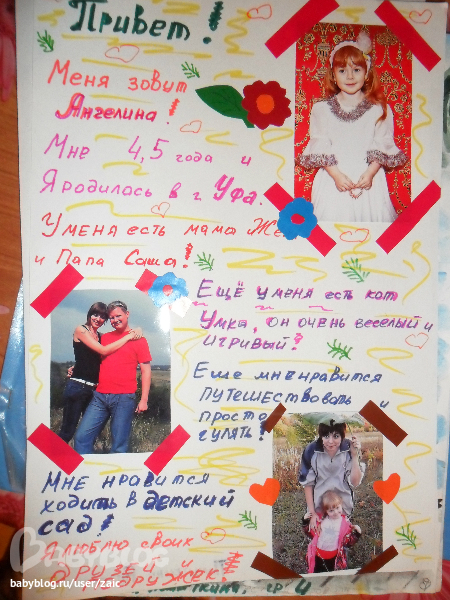 Привет!
Меня зовит
Ангелина!
Мне 4,5 года и
Я родилась в г. Уфа.
У меня есть мама Же
и Папа Саша!
Ещё у меня есть кот
Умка, он очень веселый и
игривый!
Еше мне нравится
путешествовать и
просто
гулять!
Мне нравится
ходить в детский
сад!
Я люблю своих
друзей и
подружек!
гр 4
Babyblog
babyblog.ru/user/zaic